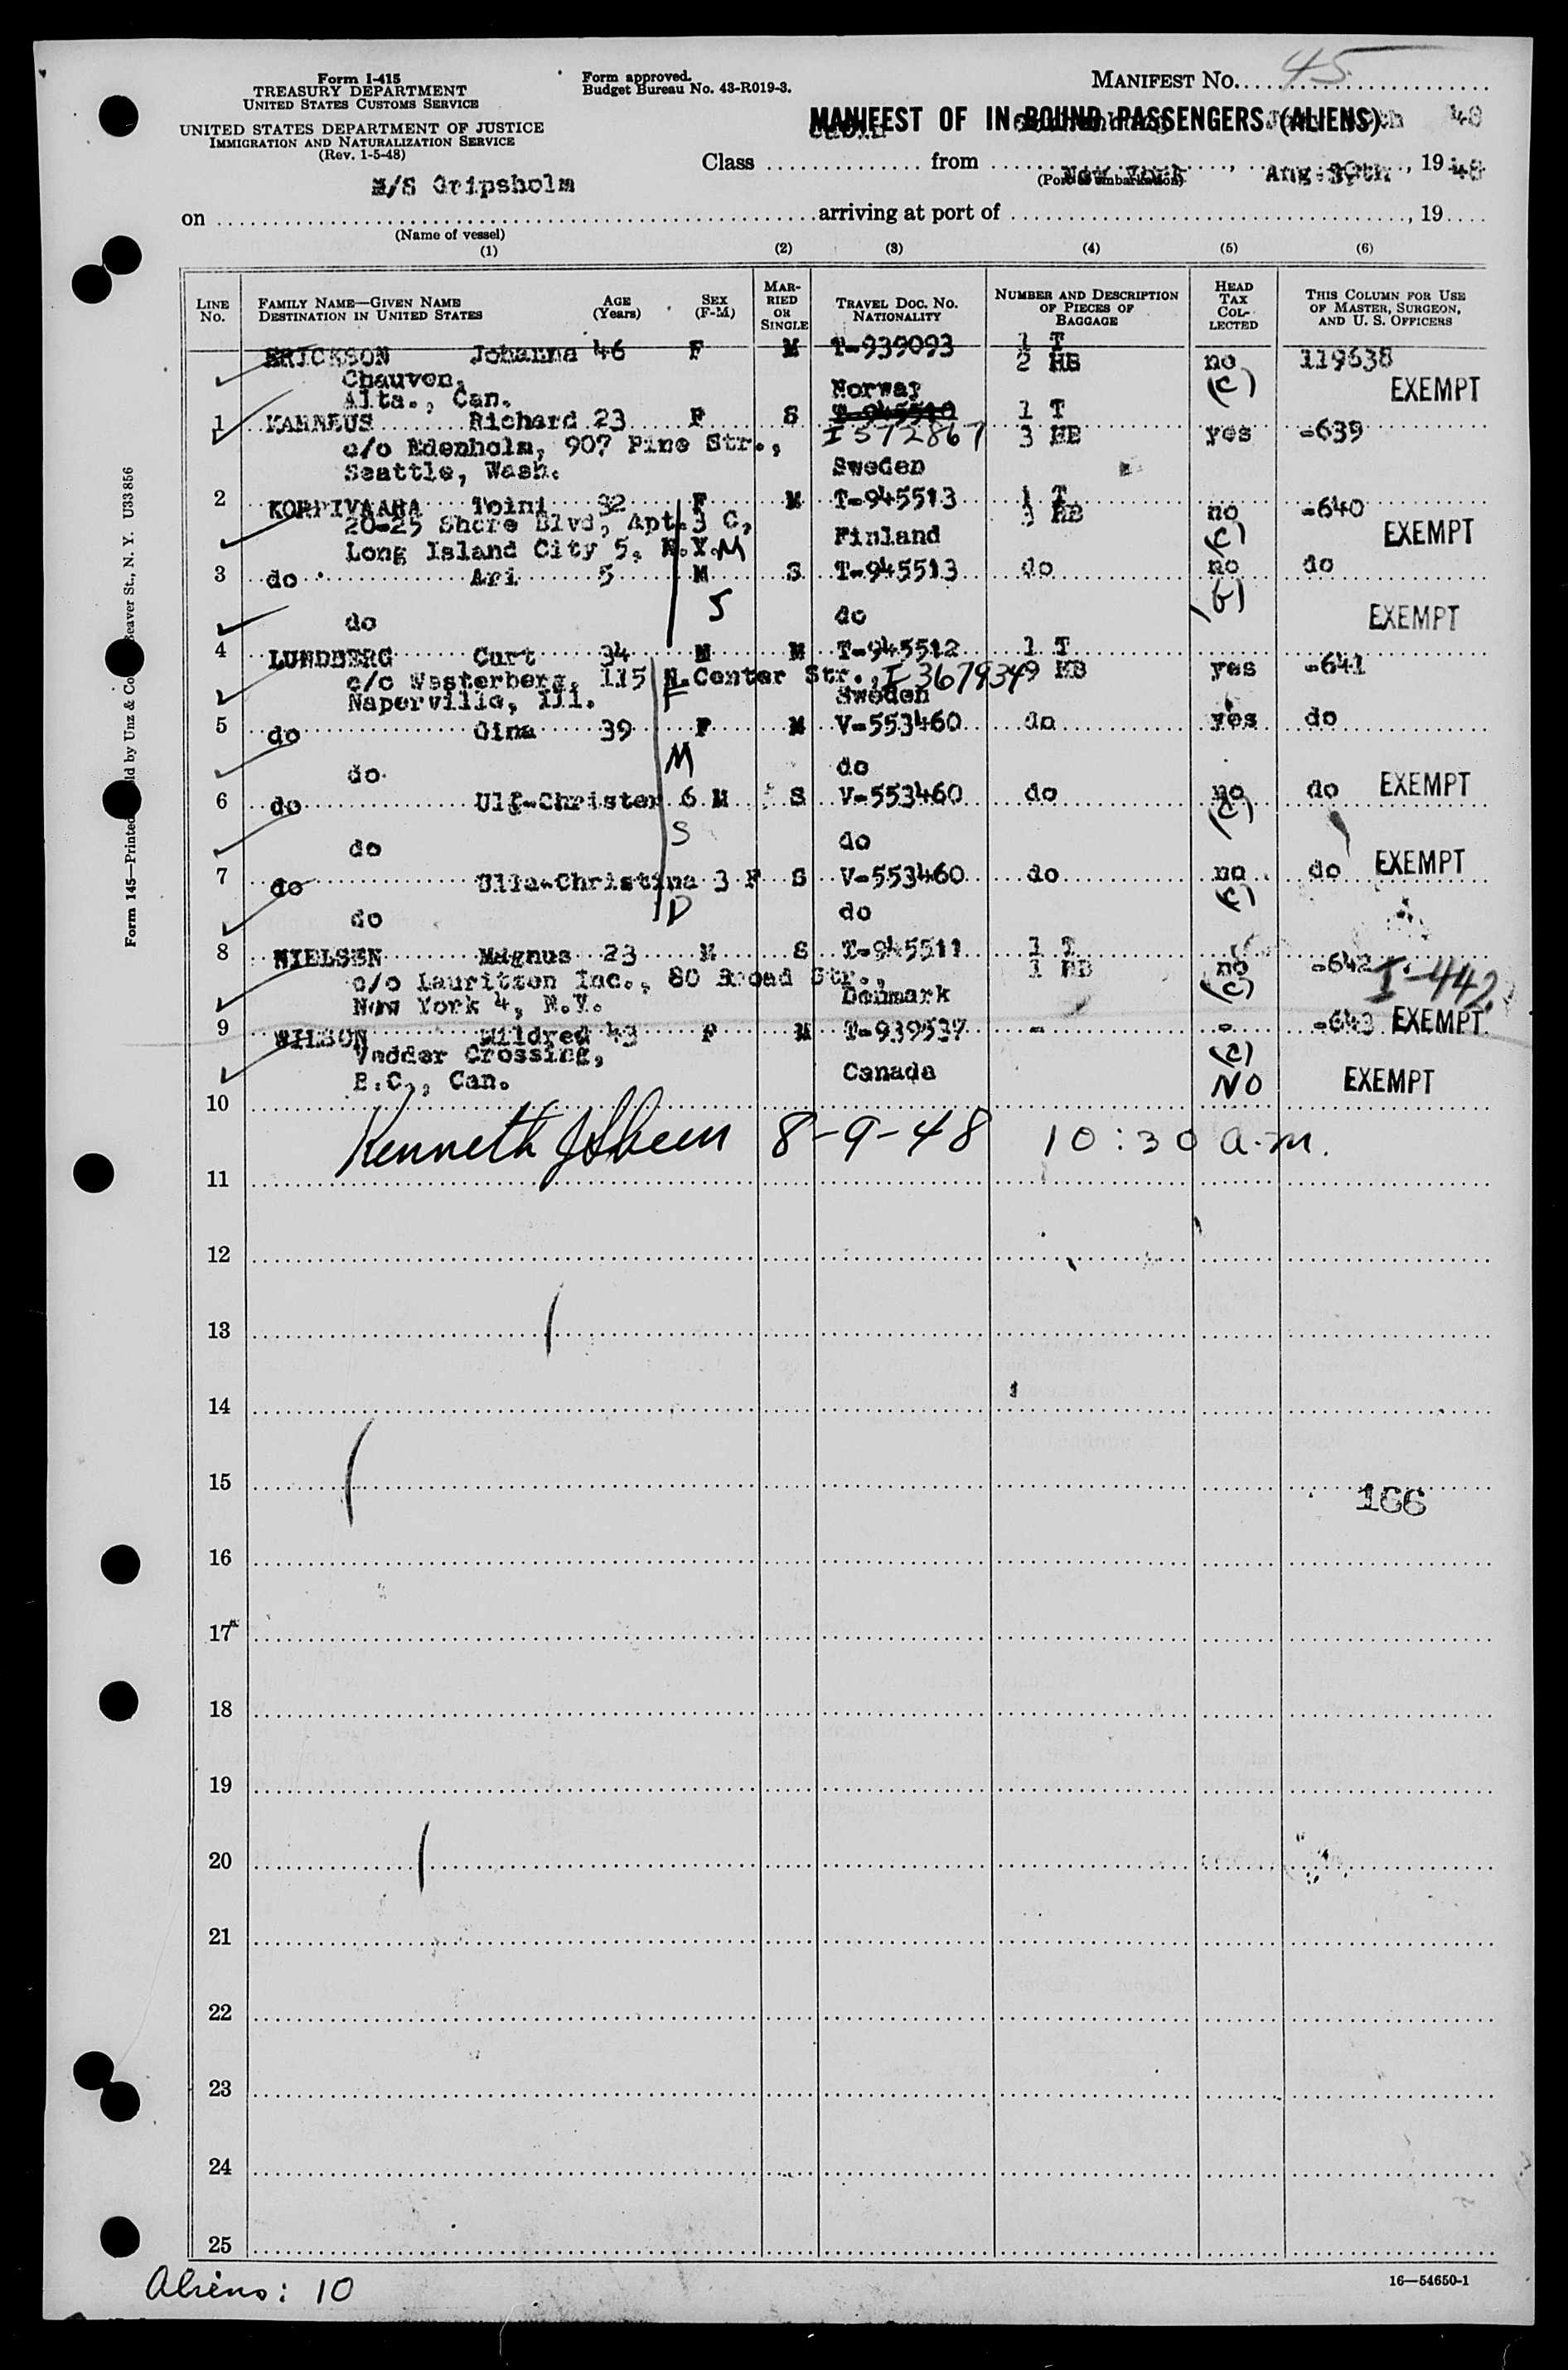 Form I-415
TREASURY DEPARTMENT
UNITED STATES CUSTOMS SERVICE
UNITED STATES DEPARTMENT OF JUSTICE
IMMIGRATION AND NATURALIZATION SERVICE
(Rev. 1-5-48)
Form approved.
Budget Bureau No. 43-R019-3.
MANIFEST NO. 45
MANIFEST OF IN-BOUND PASSENGERS (ALIENS) 48
Class from , 19 48
New York Aug. 9th
(Port of embarkation)
M/S Gripsholm
on arriving at port of , 19
(Name of vessel)
(1) (2) (3) (4) (5) (6)
LINE No. FAMILY NAME—GIVEN NAME DESTINATION IN UNITED STATES AGE (Years) SEX (F-M) MARRIED OR SINGLE TRAVEL DOC. NO. NATIONALITY NUMBER AND DESCRIPTION OF PIECES OF BAGGAGE HEAD TAX COLLECTED THIS COLUMN FOR USE OF MASTER, SURGEON, AND U. S. OFFICERS
ERICKSON Johanna 46 F M T-939093 1 T
2 HB no 119638
Chauvon, Norway (c) EXEMPT
Alta., Can.
1 KANNEUS Richard 23 F S T-945510 1 T
c/o Edenholm, 907 Pine Str., I 572867 3 HB yes -639
Seattle, Wash. Sweden
2 KORPIVAARA Toini 32 F M T-945513 1 T
20-25 Shore Blvd, Apt. 3 C, 3 HB no -640
Long Island City 5, N.Y. M Finland (c) EXEMPT
3 do Ari 5 M S T-945513 do no do
do S do (b) EXEMPT
4 LUNDBERG Curt 34 M M T-945512 1 T
c/o Westerberg, 115 N. Center Str., I 3679349 HB yes -641
Naperville, Ill. F Sweden
5 do Gina 39 F M V-553460 do yes do
do M do
6 do Ulf-Christer 6 M S V-553460 do no do EXEMPT
(c)
do S do
7 do Ulla-Christina 3 F S V-553460 do no do EXEMPT
(c)
do D do
8 NIELSEN Magnus 23 M S T-945511 1 T
c/o Lauritzen Inc., 80 Broad Str., 1 HB no -642 I-442
New York 4, N.Y. Denmark (c)
9 WILSON Mildred 43 F M T-939537 - - -643 EXEMPT
Vedder Crossing, (c)
B.C., Can. Canada NO EXEMPT
10
Kenneth J Sheen 8-9-48 10:30 a.m.
11
12
13
14
15
166
16
17
18
19
20
21
22
23
24
25
Aliens: 10
16—54650-1